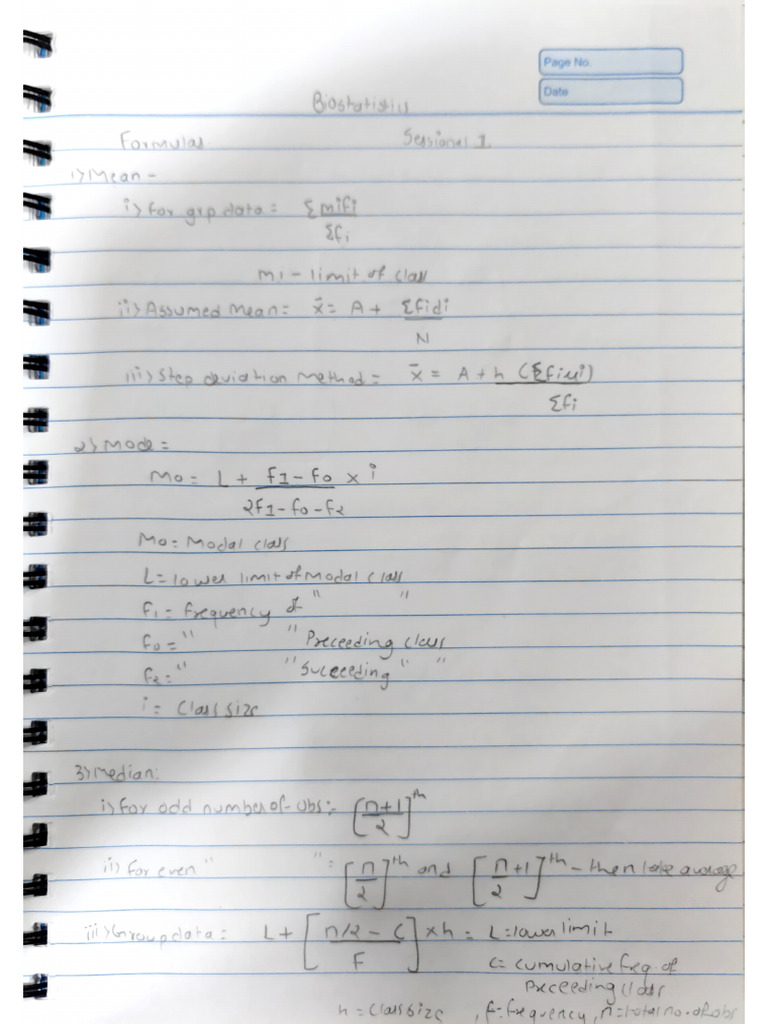 Page No.
Date
Biostatistics
Formulas Sessional 1
1) Mean -
i) for grp data = Σmifi / Σfi
mi - limit of class
ii) Assumed Mean = x̄ = A + Σfidi / N
iii) Step deviation Method = x̄ = A + h (Σfiui) / Σfi
2) Mode =
Mo = L + f1 - f0 / 2f1 - f0 - f2 × i
Mo = Modal class
L = lower limit of Modal class
f1 = frequency of " "
f0 = " " Preceeding class
f2 = " " Succeeding " "
i = Class size
3) Median:
i) for odd number of obs :- [n+1 / 2]th
ii) for even " " = [n / 2]th and [n / 2 + 1]th - then take average
iii) Group data = L + [n/2 - C / F] × h = L = lower limit
c = cumulative freq. of
Preceeding class
h = class size , f = frequency, n = total no. of obs